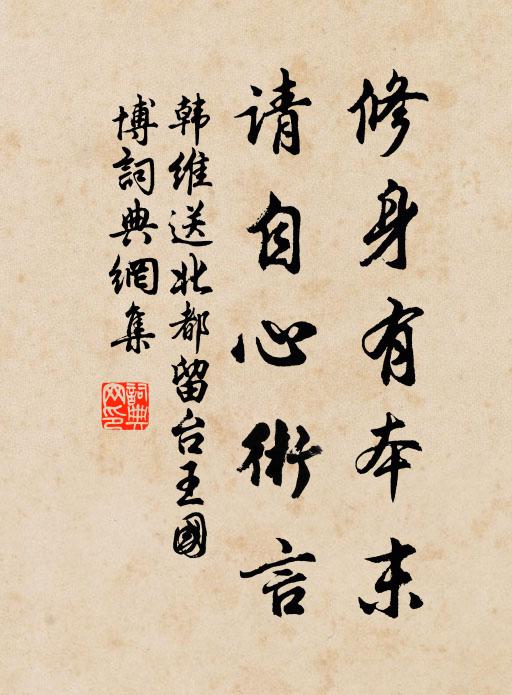 修身有本末
请自心術言
韩维送北都留台王國
博詞典網集
詞典网印